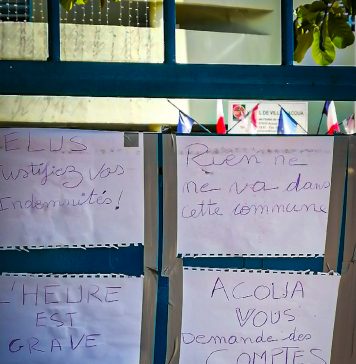 L DE VILLE ACOUA
ELUS
Justifiez vos
Indemnités!
Rien ne
ne va dans
cette commune
L'HEURE
EST
GRAVE
ACOUA
VOUS
Demande des
COMPTES